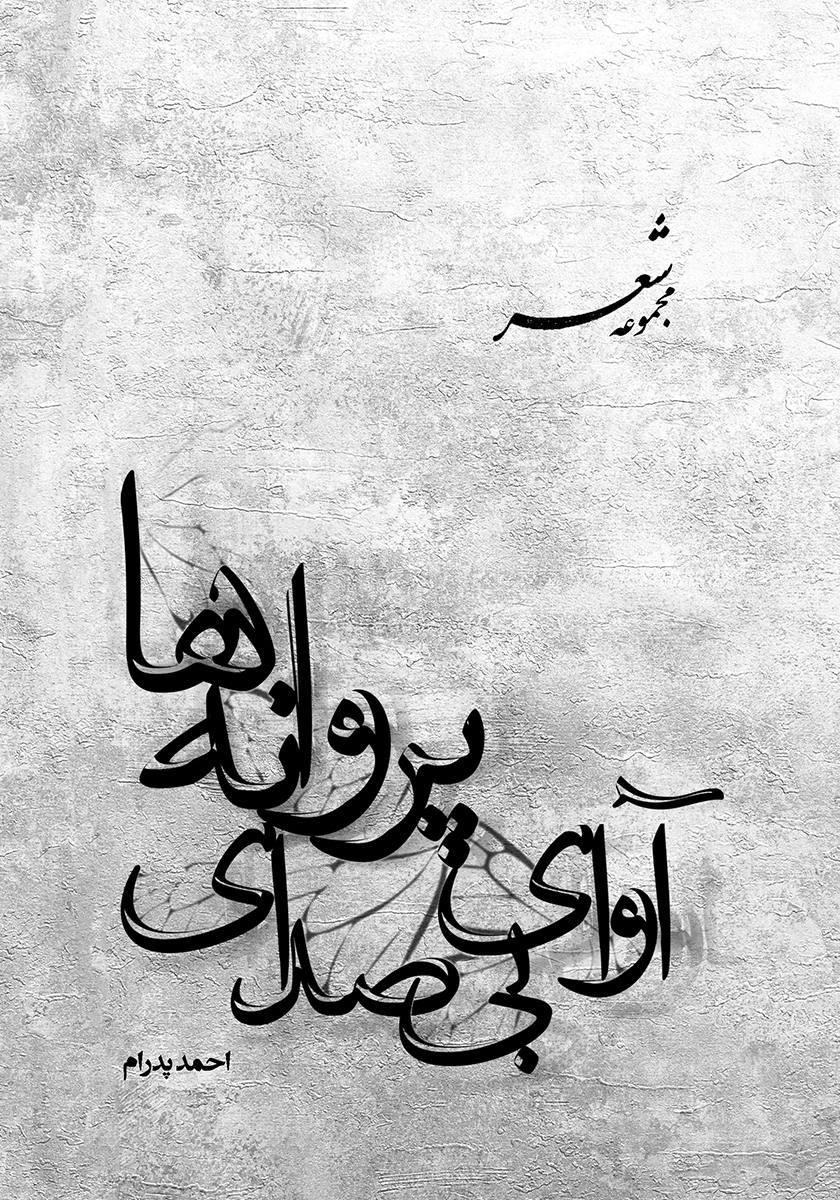 مجموعه شعر
آوای بی‌صدای
پروانه‌ها
احمد پدرام